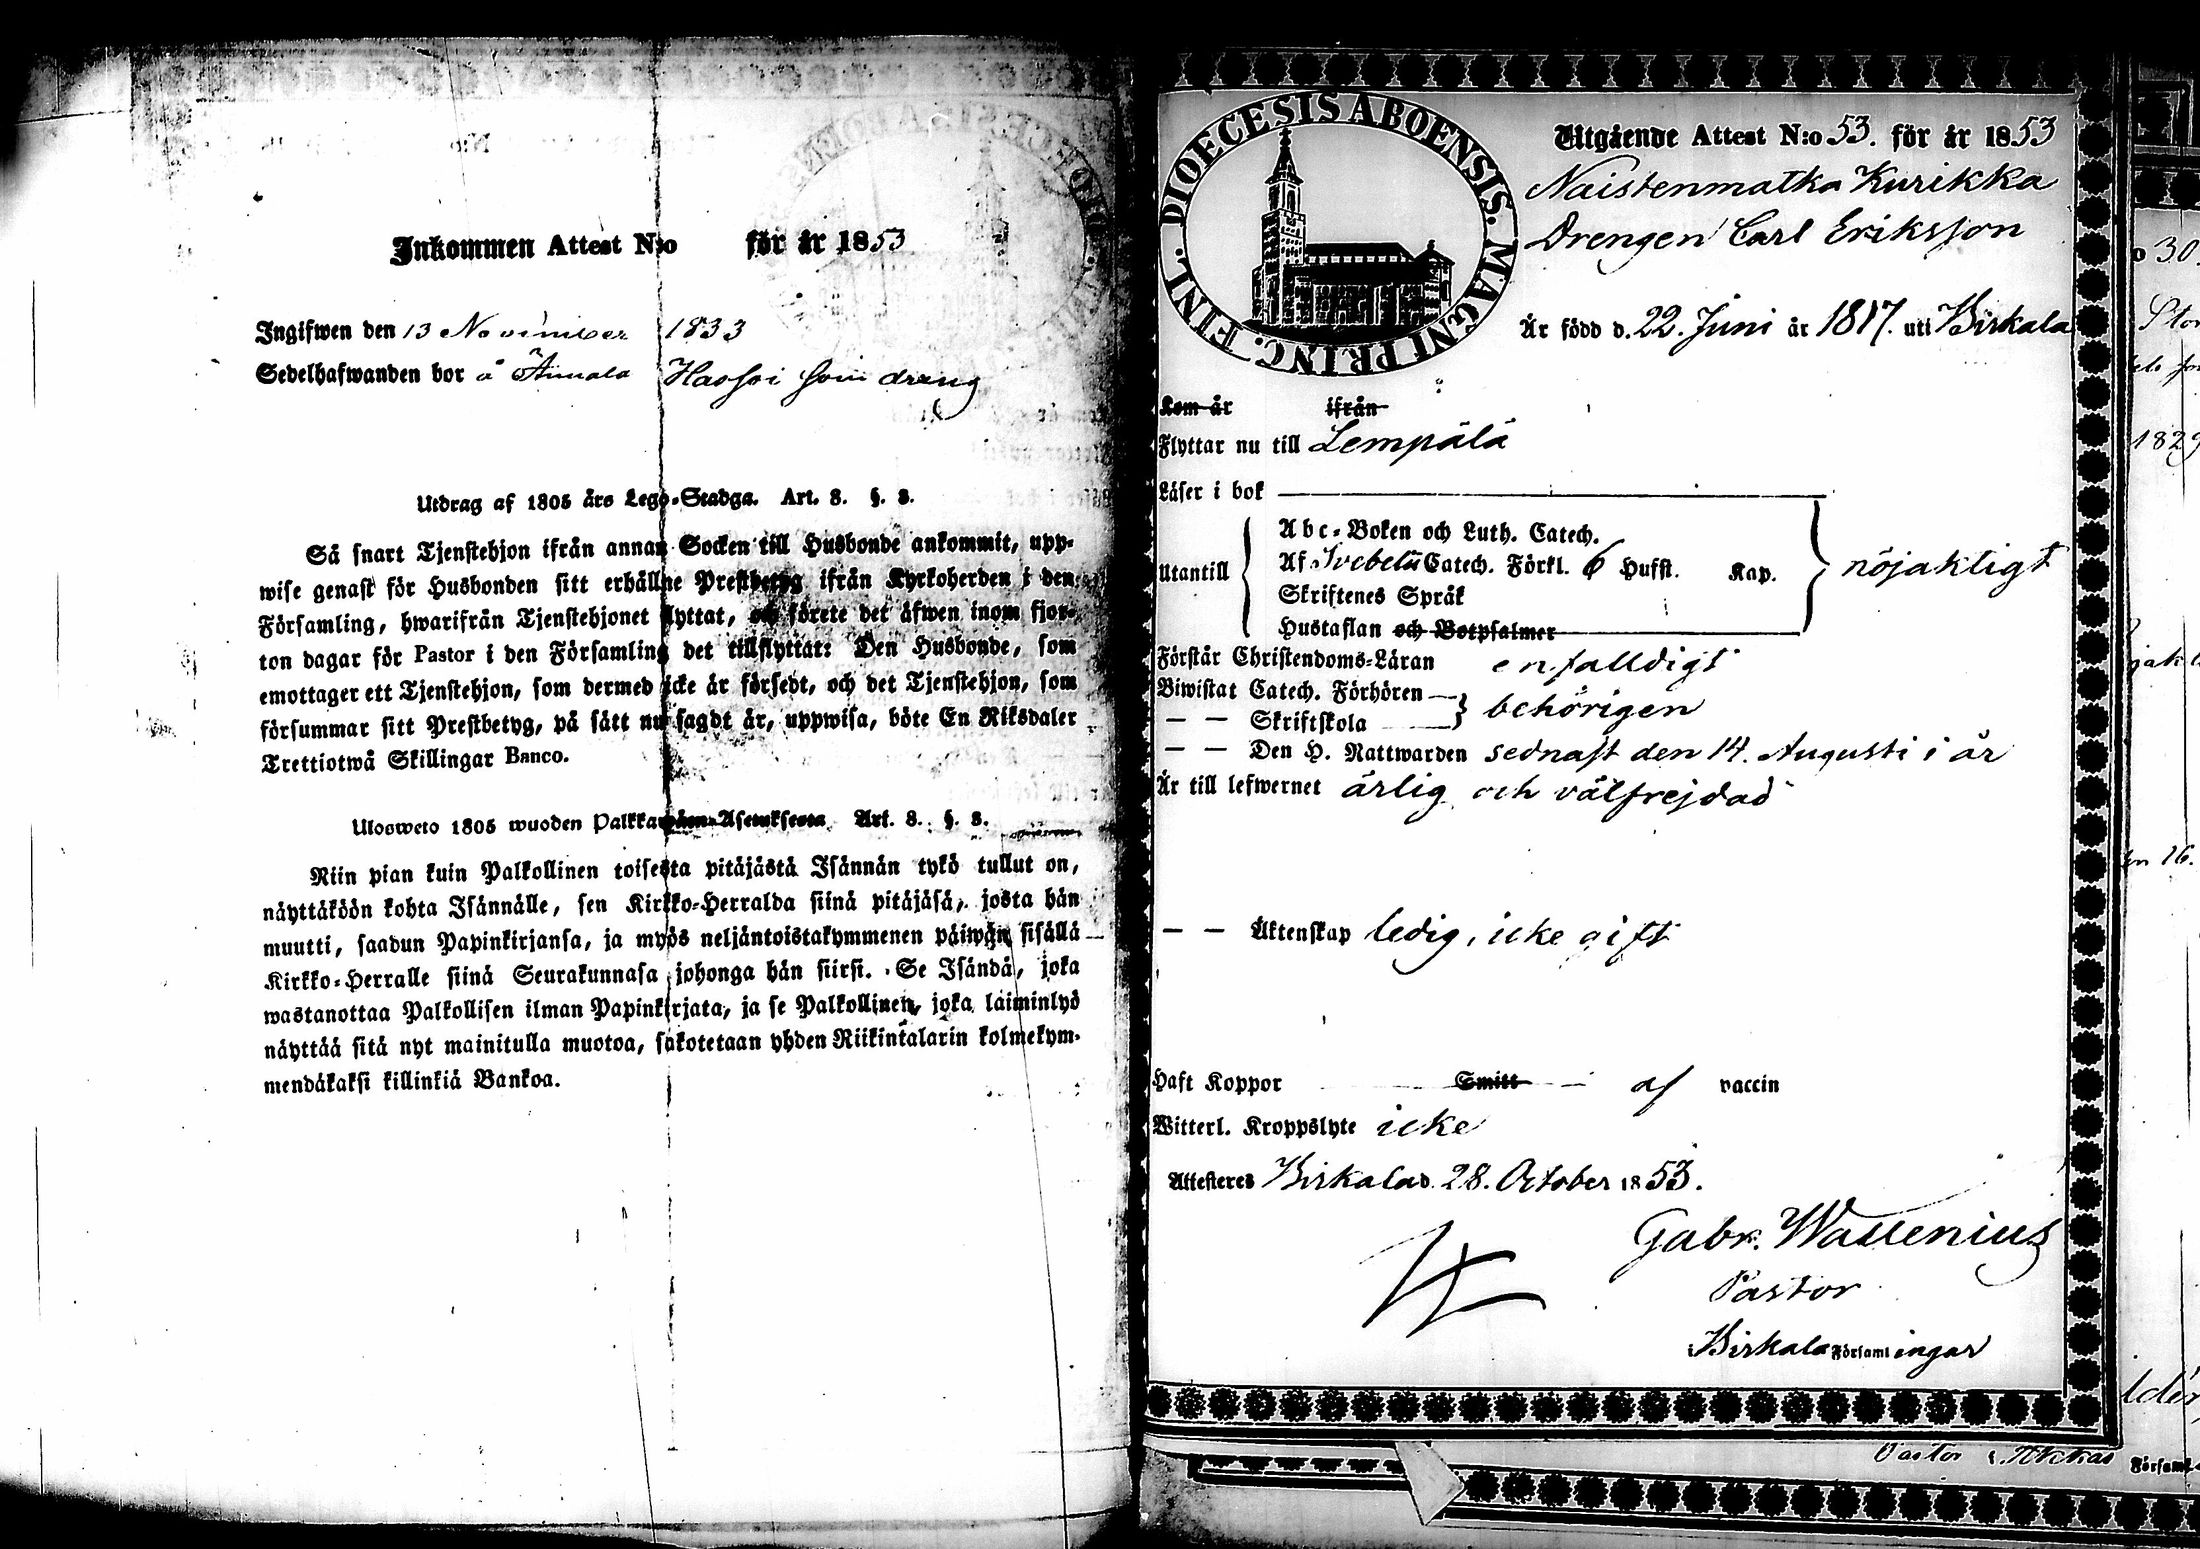 Inkommen Attest N:o för år 1853
Ingifwen den 13 November 1853
Sedelhafwanden bor å Annala Hassoi som dreng
Utdrag af 1805 års Lego-Stadga. Art. 8. §. 8.
Så snart Tjenstehjon ifrån annan Socken till Husbonde ankommit, upp-
wise genast för Husbonden sitt erhållne Prestbetyg ifrån Kyrkoherden i den
Församling, hwarifrån Tjenstehjonet flyttat, och förete det äfwen inom fjor-
ton dagar för Pastor i den Församling det tillflyttat: Den Husbonde, som
emottager ett Tjenstehjon, som dermed icke är försedt, och det Tjenstehjon, som
försummar sitt Prestbetyg, på sätt nu sagdt är, uppwisa, böte En Riksdaler
Trettiotwå Skillingar Banco.
Ulosweto 1805 wuoden Palkkawäen-Asetuksesta Art. 8. §. 8.
Niin pian kuin Palkollinen toisesta pitäjästä Isännän tykö tullut on,
näyttäköön kohta Isännälle, sen Kirkko-Herralda siinä pitäjäsä, josta hän
muutti, saadun Papinkirjansa, ja myös neljäntoistakymmenen päiwän sisällä
Kirkko-Herralle siinä Seurakunnasa johonga hän siirsi. Se Isändä, joka
wastanottaa Palkollisen ilman Papinkirjata, ja se Palkollinen, joka laiminlyö
näyttää sitä nyt mainitulla muotoa, sakotetaan yhden Riikintalarin kolmekym-
mendäkaksi killinkiä Bankoa.
FINL. DIOECESIS ABOENSIS. MAGNI PRINC.
Utgående Attest N:o 53. för år 1853
Naistenmatka Kurikka
Drengen Carl Eriksson
Är född d. 22. Juni år 1817. uti Birkala
Kom år ifrån
Flyttar nu till Lempälä
Läser i bok
Utantill
Abc-Boken och Luth. Catech.
Af Svebelii Catech. Förkl. 6 Hufst. Kap.
Skriftenes Språk
Hustaflan och Botpsalmer
nöjaktigt
Förstår Christendoms-Läran enfalldigt
Biwistat Catech. Förhören
— — Skriftskola
behörigen
— — Den H. Nattwarden sednast den 14. Augusti i år
Är till lefwernet ärlig och välfrejdad
— — Äktenskap ledig, icke gift
Haft Koppor Smitt af vaccin
Witterl. Kroppslyte icke
Attesteres Birkala d. 28. October 1853.
Gabr. Wallenius
Pastor
i Birkala Församlingar
o 30.
1829
en 16.
Pastor i Församl